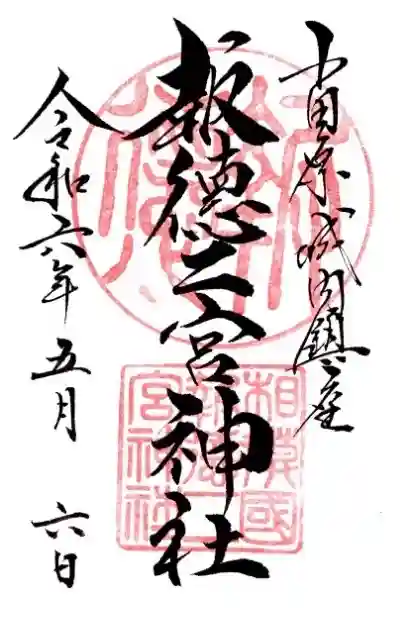 小田原城内鎮座
報徳二宮神社
令和六年五月六日
相模國
報徳二
宮神社